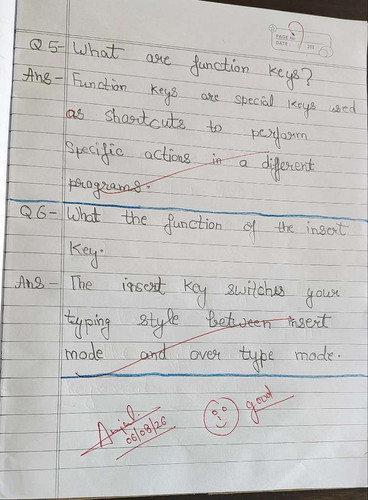 PAGE No.
DATE
Q 5- What are function keys?
Ans - Function keys are special keys used
as shortcuts to perform
Specific actions in a different
programs.
Q 6- What the function of the insert
Key.
Ans - The insert key switches your
typing style between insert
mode and over type mode.
06/08/26
good